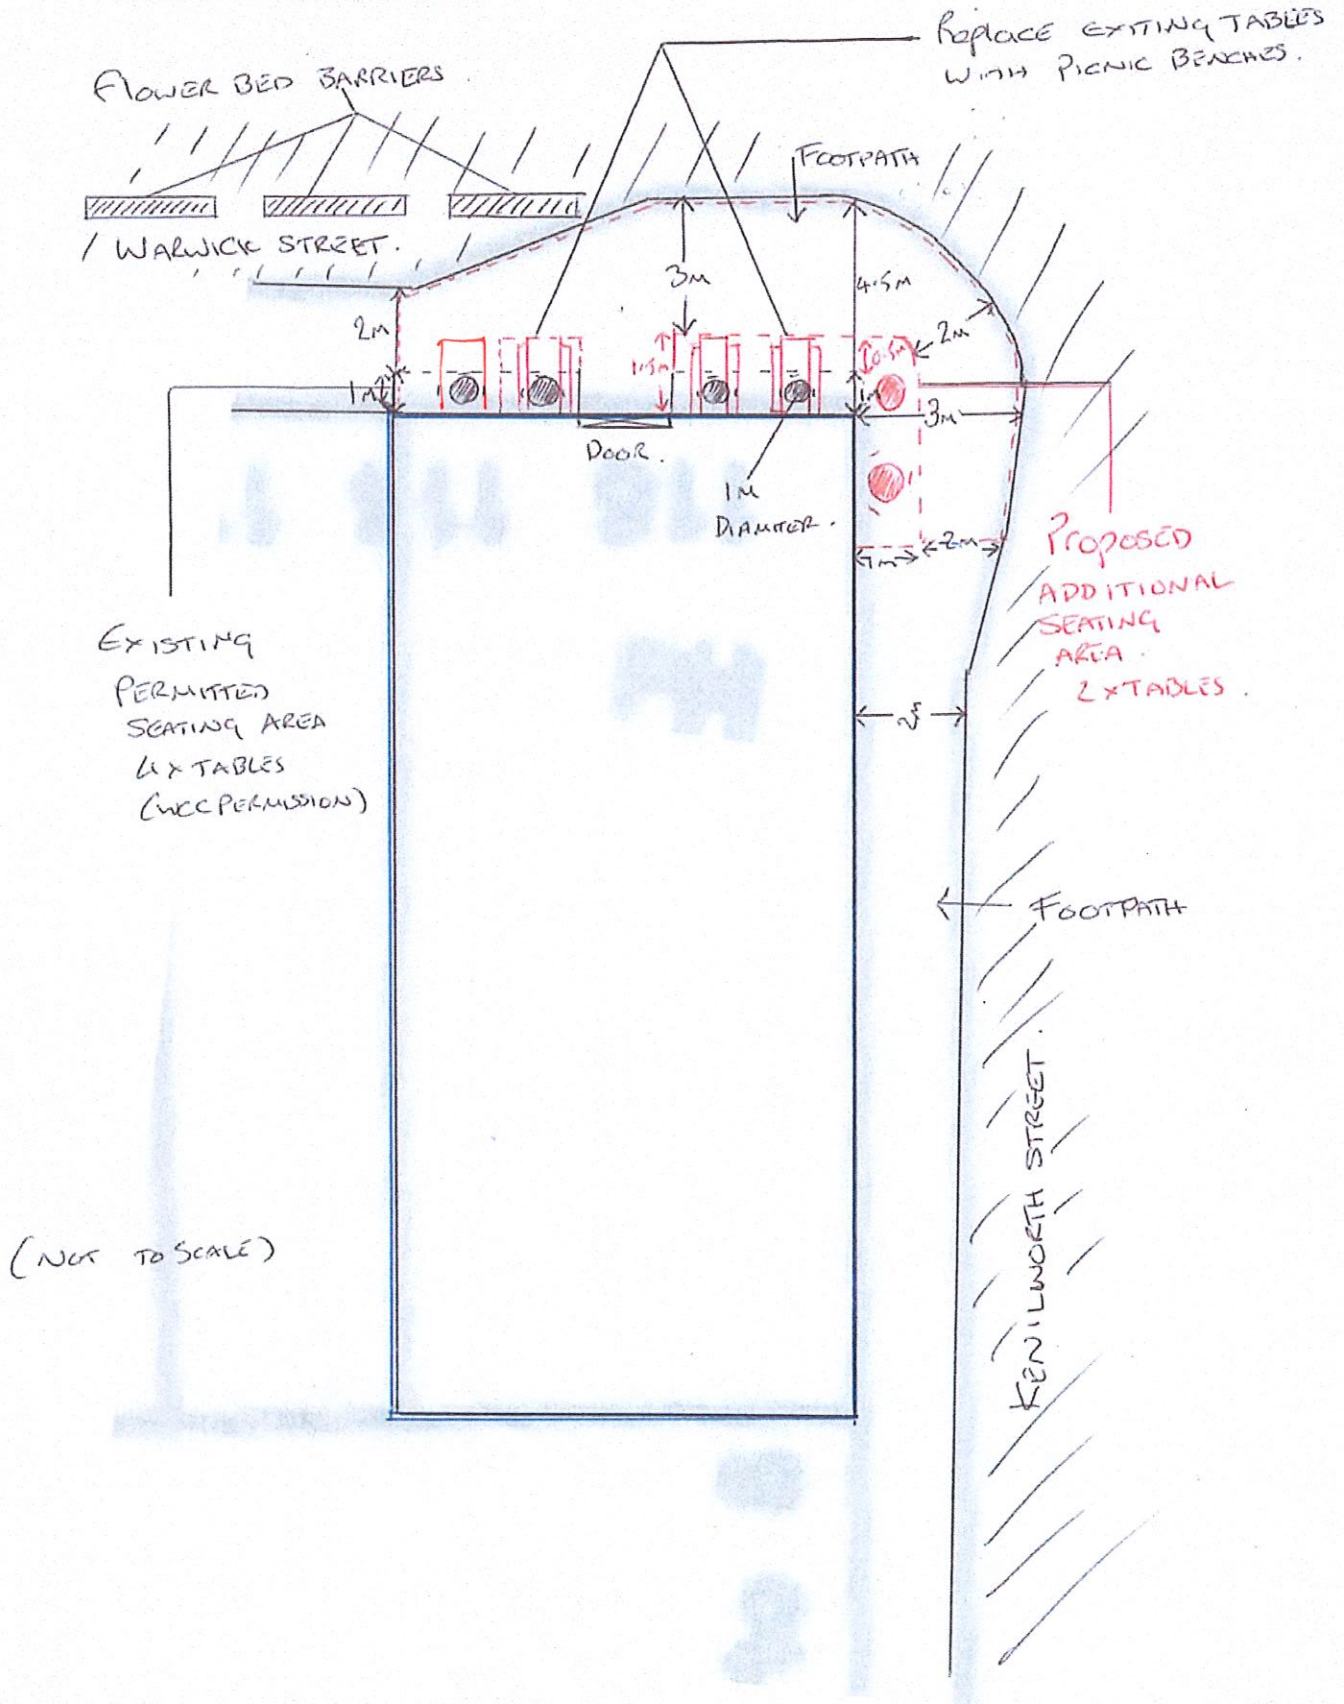 Replace EXITING TABLES
WITH PICNIC BENCHES.
FLOWER BED BARRIERS.
FOOTPATH
WARWICK STREET.
3M
4.5M
2M
2M
1.5M
0.5M
1M
3M
DOOR.
1M
DIAMTER.
1M
2M
PROPOSED
ADDITIONAL
SEATING
AREA.
2 x TABLES.
EXISTING
PERMITTED
SEATING AREA
4 x TABLES
(WCC PERMISSION)
FOOTPATH
KENILWORTH STREET.
(NOT TO SCALE)